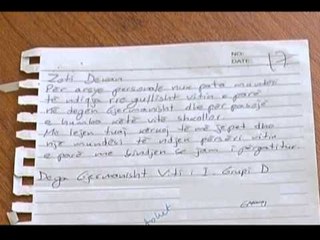 NO:
DATE: 17
Zoti Dewan
Për arsye personale nuk pata mundësi
të ndiqja rregullisht vitin e parë
në degën Gjermanisht dhe për pasojë
e humba këtë vit shkollor
Me lejen tuaj të më jepet dhe
një mundësi të ndjek përsëri vitin
e parë me bindjen se jam i përgatitur.
Dega Gjermanisht Viti I Grupi D